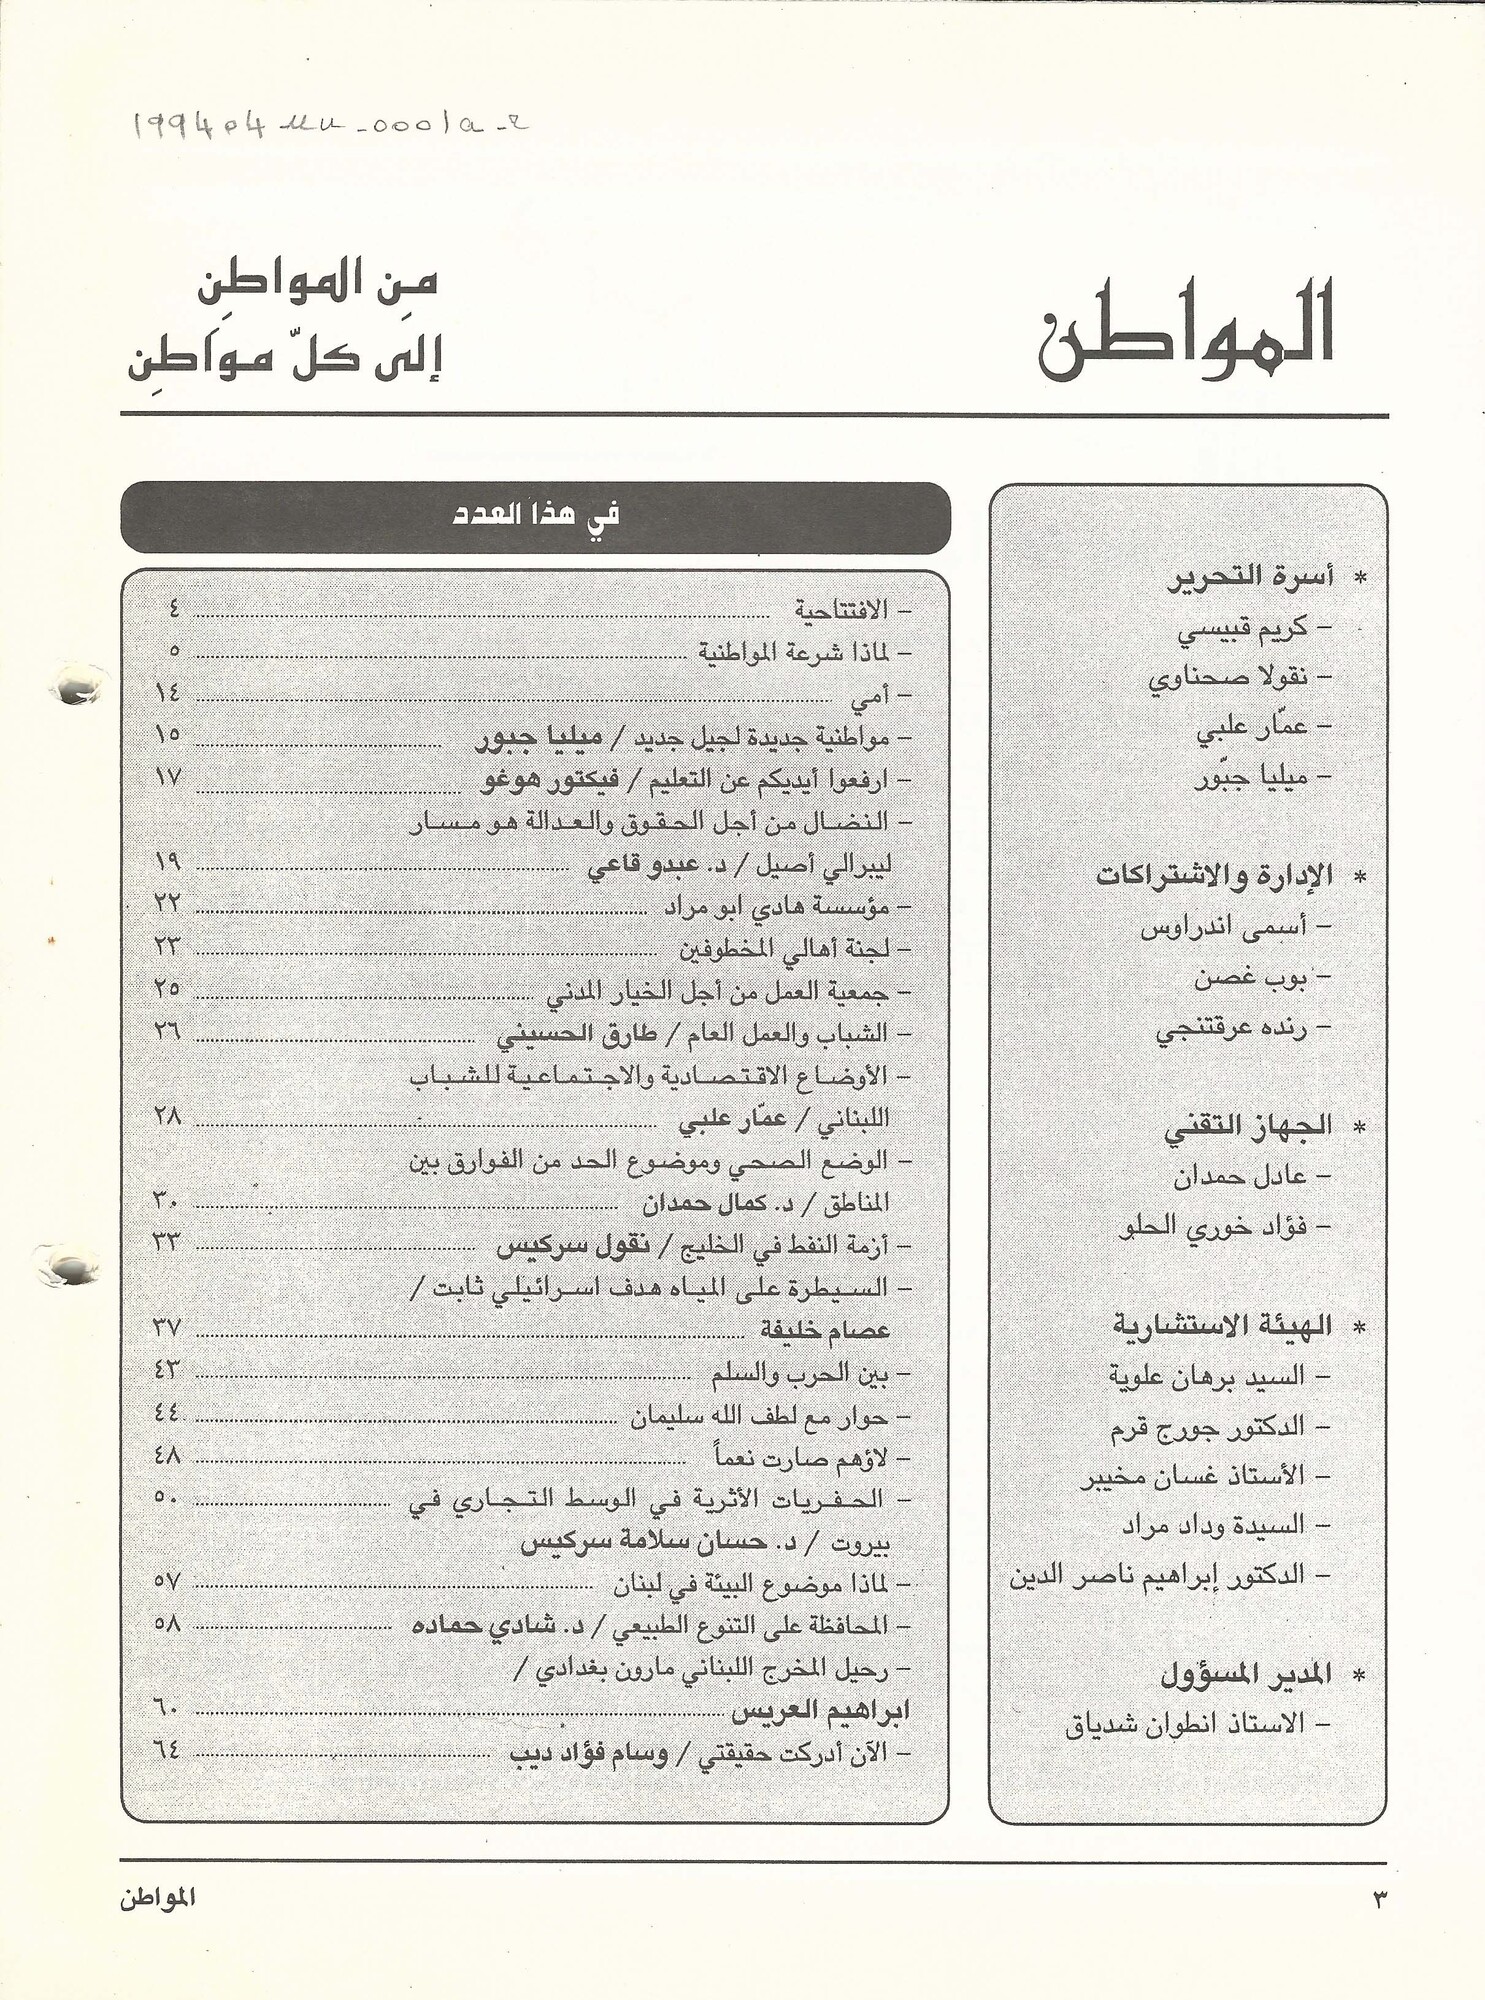 199404 -0001a-2
المواطن
مِن المواطِن
إلى كلّ مواَطِن
* أسرة التحرير
– كريم قبيسي
– نقولا صحناوي
– عمّار علبي
– ميليا جبّور
* الإدارة والاشتراكات
– أسمى اندراوس
– بوب غصن
– رنده عرقتنجي
* الجهاز التقني
– عادل حمدان
– فؤاد خوري الحلو
* الهيئة الاستشارية
– السيد برهان علوية
– الدكتور جورج قرم
– الأستاذ غسان مخيبر
– السيدة وداد مراد
– الدكتور إبراهيم ناصر الدين
* المدير المسؤول
– الاستاذ انطوان شدياق
في هذا العدد
– الافتتاحية ٤
– لماذا شرعة المواطنية ٥
– أمي ١٤
– مواطنية جديدة لجيل جديد / ميليا جبور ١٥
– ارفعوا أيديكم عن التعليم / فيكتور هوغو ١٧
– النضال من أجل الحقوق والعدالة هو مسار
ليبرالي أصيل / د. عبدو قاعي ١٩
– مؤسسة هادي ابو مراد ٢٢
– لجنة أهالي المخطوفين ٢٣
– جمعية العمل من أجل الخيار المدني ٢٥
– الشباب والعمل العام / طارق الحسيني ٢٦
– الأوضاع الاقتصادية والاجتماعية للشباب
اللبناني / عمّار علبي ٢٨
– الوضع الصحي وموضوع الحد من الفوارق بين
المناطق / د. كمال حمدان ٣٠
– أزمة النفط في الخليج / نقول سركيس ٣٣
– السيطرة على المياه هدف اسرائيلي ثابت /
عصام خليفة ٣٧
– بين الحرب والسلم ٤٣
– حوار مع لطف الله سليمان ٤٤
– لاؤهم صارت نعماً ٤٨
– الحفريات الأثرية في الوسط التجاري في ٥٠
بيروت / د. حسان سلامة سركيس
– لماذا موضوع البيئة في لبنان ٥٧
– المحافظة على التنوع الطبيعي / د. شادي حماده ٥٨
– رحيل المخرج اللبناني مارون بغدادي /
ابراهيم العريس ٦٠
– الآن أدركت حقيقتي / وسام فؤاد ديب ٦٤
٣
المواطن